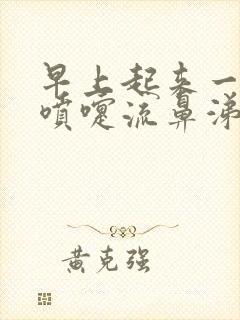 早上起来一
喷嚏流鼻涕
黄克强